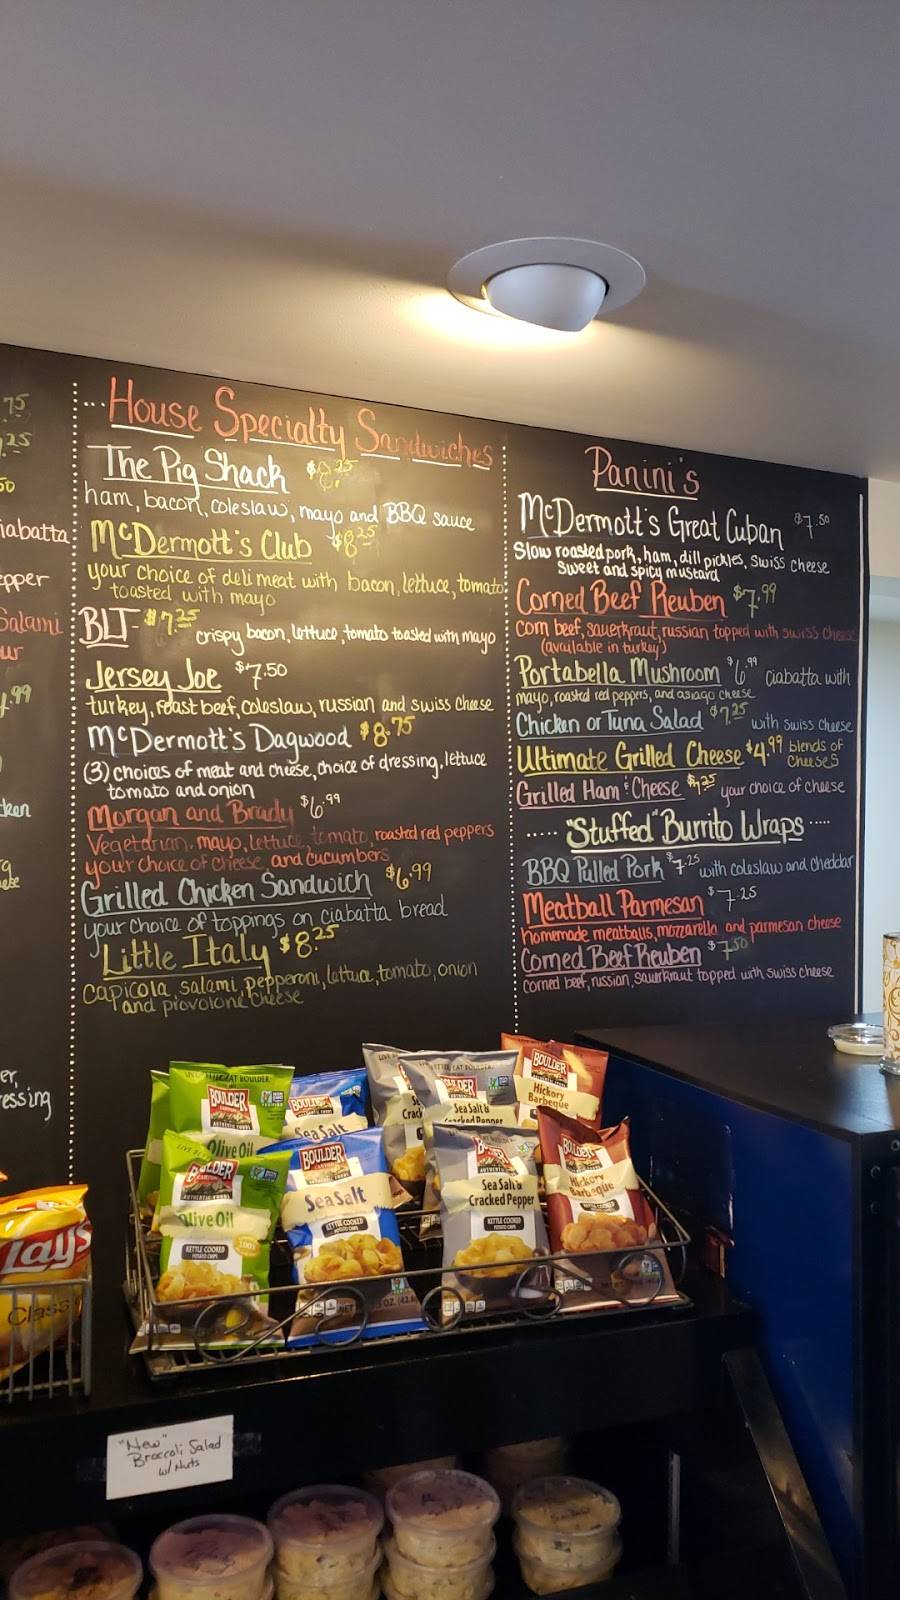 75
.25
50
iabatta
epper
Salami
ur
4.99
cken
er,
ressing
House Specialty Sandwiches
The Pig Shack $8.25
ham, bacon, coleslaw, mayo and BBQ sauce
McDermott's Club $8.25
your choice of deli meat with bacon, lettuce, tomato
toasted with mayo
BLT- $7.25 crispy bacon, lettuce, tomato toasted with mayo
Jersey Joe $7.50
turkey, roast beef, coleslaw, russian and swiss cheese
McDermott's Dagwood $8.75
(3) choices of meat and cheese, choice of dressing, lettuce
tomato and onion
Morgan and Brady $6.99
Vegetarian, mayo, lettuce, tomato, roasted red peppers
your choice of cheese and cucumbers
Grilled Chicken Sandwich $6.99
your choice of toppings on ciabatta bread
Little Italy $8.25
capicola, salami, pepperoni, lettuce, tomato, onion
and provolone cheese
Panini's
McDermott's Great Cuban $7.50
Slow roasted pork, ham, dill pickles, swiss cheese
sweet and spicy mustard
Corned Beef Reuben $7.99
corn beef, sauerkraut, russian topped with swiss cheese
(available in turkey)
Portabella Mushroom $6.99 ciabatta with
mayo, roasted red peppers, and asiago cheese
Chicken or Tuna Salad $7.25 with swiss cheese
Ultimate Grilled Cheese $4.99 blends of
cheeses
Grilled Ham & Cheese $7.25 your choice of cheese
..... "Stuffed" Burrito Wraps .....
BBQ Pulled Pork $7.25 with coleslaw and cheddar
Meatball Parmesan $7.25
homemade meatballs, mozzarella and parmesan cheese
Corned Beef Reuben $7.50
corned beef, russian, sauerkraut topped with swiss cheese
BOULDER
AUTHENTIC FOODS
Olive Oil
BOULDER
Sea Salt
BOULDER
Sea Salt &
Cracked Pepper
BOULDER
Hickory
Barbeque
BOULDER
CANYON
AUTHENTIC FOODS
Olive Oil
KETTLE COOKED
POTATO CHIPS
BOULDER
CANYON
Sea Salt
KETTLE COOKED
POTATO CHIPS
AUTHENTIC
Sea Salt &
Cracked Pepper
KETTLE COOKED
POTATO CHIPS
Hickory
Barbeque
KETTLE COOKED
Lay's
Classic
"New"
Broccoli Salad
w/ Nuts